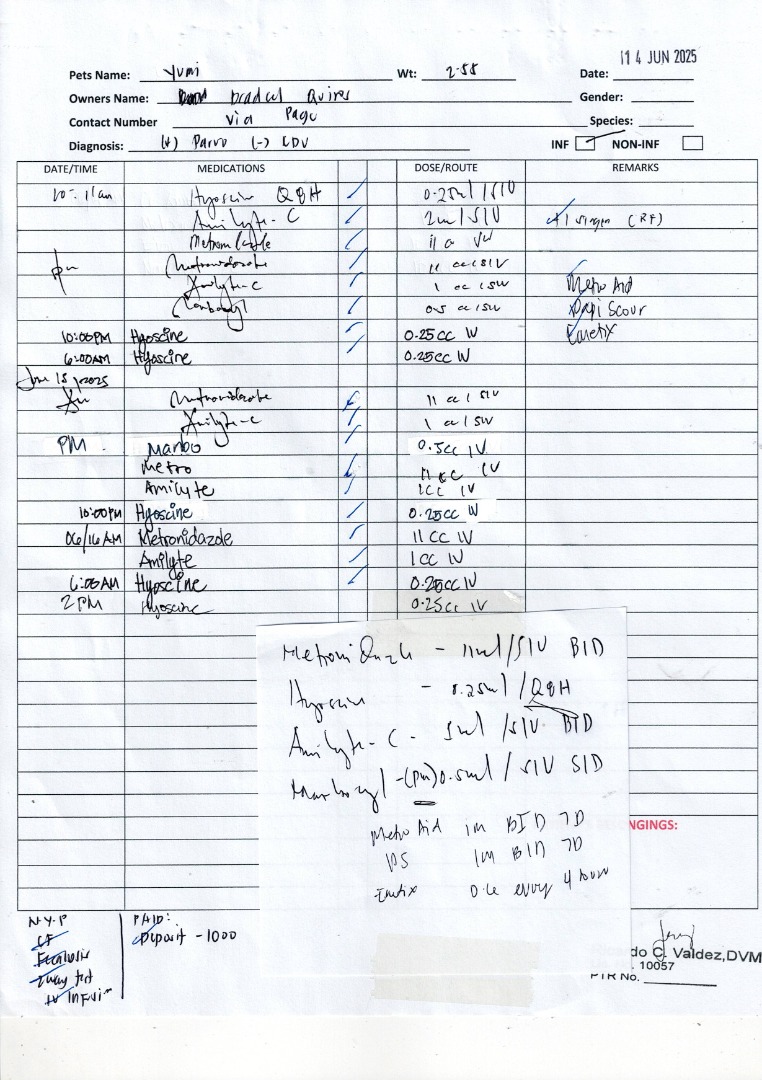 14 JUN 2025
Pets Name: Yumi Wt: 2.55 Date:
Owners Name: Quires Gender:
Contact Number Via Page Species:
Diagnosis: (+) Parvo (-) CDV INF NON-INF
DATE/TIME MEDICATIONS DOSE/ROUTE REMARKS
10:11am Hyoscine Q8H 0.25ml / SIV
Amilyte-C 2ml / SIV (RF)
Metronidazole 11 cc IV
pm Metronidazole 11 cc / SIV Metro Aid
Amilyte-C 1 cc / SIV Papi Scour
Marbocyl 0.5 cc / SIV Emetix
10:00PM Hyoscine 0.25cc IV
6:00AM Hyoscine 0.25cc IV
June 15, 2025
Am Metronidazole 11 cc / SIV
Amilyte-C 1 cc / SIV
PM Marbo 0.5cc IV
Metro 11 cc IV
Amilyte 1cc IV
10:00PM Hyoscine 0.25cc IV
06/16 AM Metronidazole 11 CC IV
Amilyte 1cc IV
6:00AM Hyoscine 0.25cc IV
2 PM Hyoscine 0.25cc IV
Metronidazole - 11ml/SIV BID
Hyoscine - 0.25ml / Q8H
Amilyte-C - 1ml /SIV BID
Marbocyl -(pm) 0.5ml / SIV SID
Metro Aid 1m BID 7D
PS 1m BID 7D
Emetix every 4 hour
NGINGS:
N.Y.P PAID:
CF Deposit - 1000
2way test
IV Infusion
do C. Valdez,DVM
10057
PTR No.